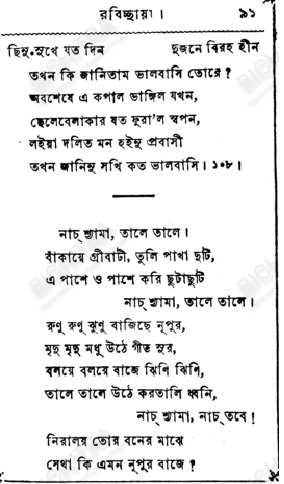 রবিচ্ছায়া। ৯১
ছিনু সুখে যত দিন দুজনে বিরহ হীন
তখন কি জানিতাম ভালবাসি তোরে?
অবশেষে এ কপাল ভাঙ্গিল যখন,
ছেলেবেলাকার যত ফুরা'ল স্বপন,
লইয়া দলিত মন হইনু প্রবাসী
তখন জানিনু সখি কত ভালবাসি। ১০৮।
নাচ্ শ্যামা, তালে তালে।
বাঁকায়ে গ্রীবাটী, তুলি পাখা দুটি,
এ পাশে ও পাশে করি ছুটাছুটি
নাচ্ শ্যামা, তালে তালে।
রুণু রুণু ঝুণু বাজিছে নূপুর,
মৃদু মৃদু মধু উঠে গীত সুর,
বলয়ে বলয়ে বাজে ঝিণি ঝিণি,
তালে তালে উঠে করতালি ধ্বনি,
নাচ্ শ্যামা, নাচ্ তবে!
নিরালয় তোর বনের মাঝে
সেথা কি এমন নূপুর বাজে?